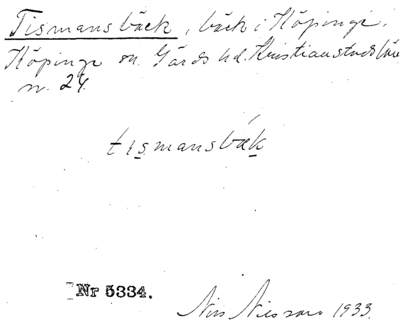 Tismansbäck, bäck i Köpinge,
Köpinge sn. Gärds hd. Kristianstads län
n. 24.
tismansbäk
Nr 5334.
Nils Nilsson 1933.